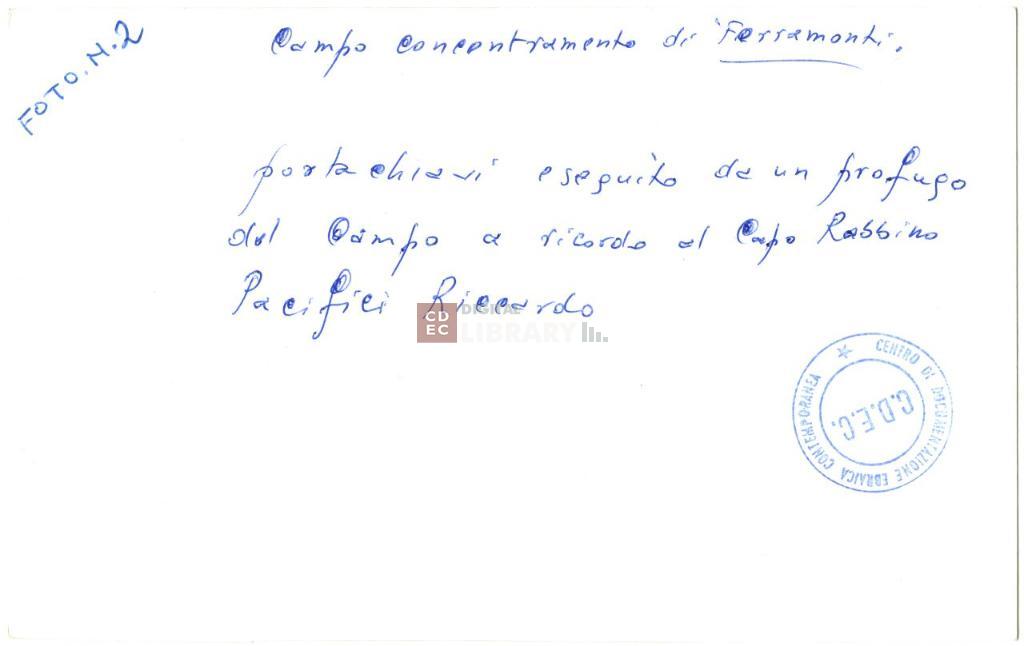 FOTO. N. 2
Campo concentramento di Ferramonti.
portachiavi eseguito da un profugo
del Campo a ricordo al Capo Rabbino
Pacifici Riccardo
CDEC DIGITAL LIBRARY
CENTRO DI DOCUMENTAZIONE EBRAICA CONTEMPORANEA
C.D.E.C.